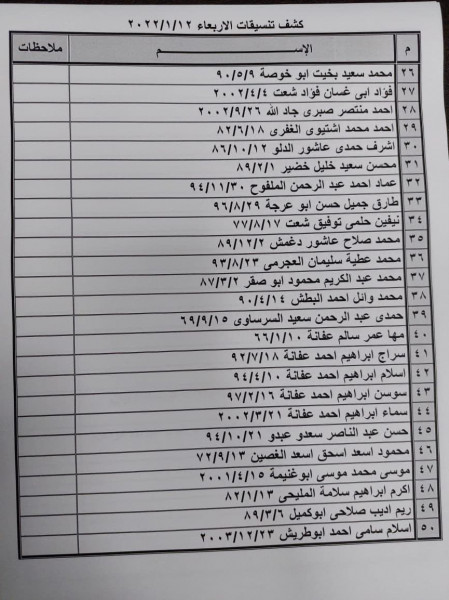 كشف تنسيقات الاربعاء ٢٠٢٢/١/١٢
م الإســـم ملاحظات
٢٦ محمد سعيد بخيت ابو خوصة ٩٠/٥/٩
٢٧ فؤاد ابى غسان فؤاد شعت ٢٠٠٢/٤/٤
٢٨ احمد منتصر صبرى جاد الله ٢٠٠٢/٩/٢٦
٢٩ احمد محمد اشتيوى الغفرى ٨٢/٦/١٨
٣٠ اشرف حمدى عاشور الدلو ٨٦/١٠/١٢
٣١ محسن سعيد خليل خضير ٨٩/٢/١
٣٢ عماد احمد عبد الرحمن الملفوح ٩٤/١١/٣٠
٣٣ طارق جميل حسن ابو عرجة ٩٦/٨/٢٩
٣٤ نيفين حلمى توفيق شعت ٧٧/٨/١٧
٣٥ محمد صلاح عاشور دغمش ٨٩/١٢/٢
٣٦ محمد عطية سليمان العجرمى ٩٣/٨/٢٣
٣٧ محمد عبد الكريم محمود ابو صقر ٨٧/٣/٢
٣٨ محمد وائل احمد البطش ٩٠/٤/١٤
٣٩ حمدى عبد الرحمن سعيد السرساوى ٦٩/٩/١٥
٤٠ مها عمر سالم عفانة ٦٦/١/١٠
٤١ سراج ابراهيم احمد عفانة ٩٢/٧/١٨
٤٢ اسلام ابراهيم احمد عفانة ٩٤/٤/١٠
٤٣ سوسن ابراهيم احمد عفانة ٩٧/٢/١٦
٤٤ سماء ابراهيم احمد عفانة ٢٠٠٢/٣/٢١
٤٥ حسن عبد الناصر سعدو عبدو ٩٤/١٠/٢١
٤٦ محمود اسعد اسحق اسعد الغصين ٧٢/٩/١٣
٤٧ موسى محمد موسى ابوغنيمة ٢٠٠١/٤/١٥
٤٨ اكرم ابراهيم سلامة المليحى ٨٢/١/١٣
٤٩ ريم اديب صلاحى ابوكميل ٨٩/٣/٦
٥٠ اسلام سامى احمد ابوطريش ٢٠٠٣/١٢/٢٣